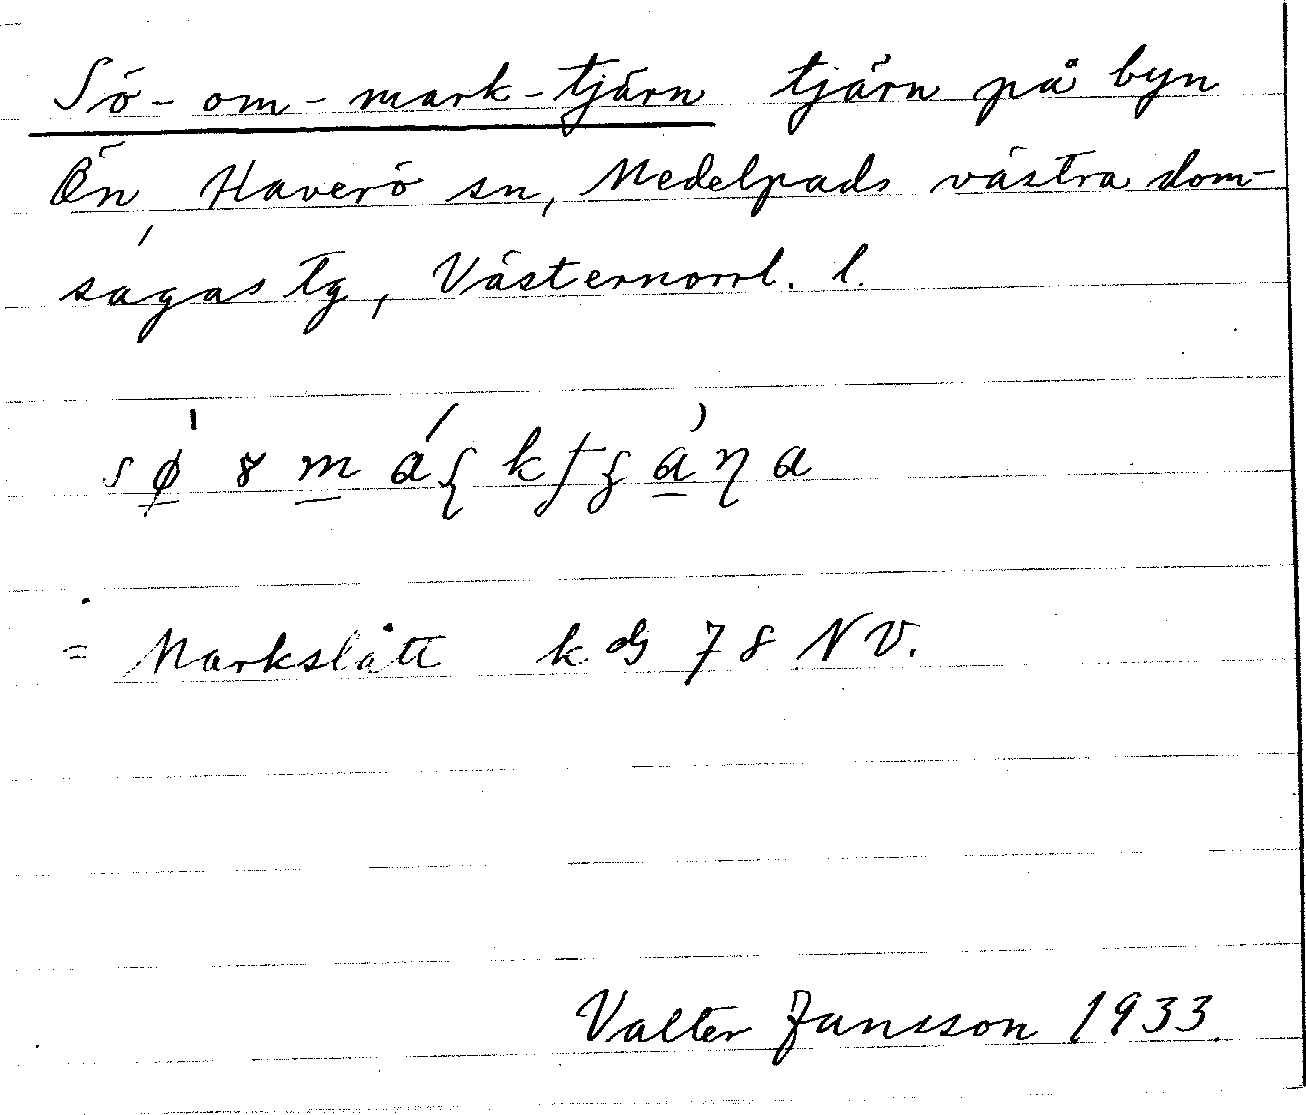 Sö-om-mark-tjärn tjärn på byn
Ön, Haverö sn, Medelpads västra dom-
sagas tg, Västernorrl. l.
= Markslått k bl 78 NV.
Valter Jansson 1933.